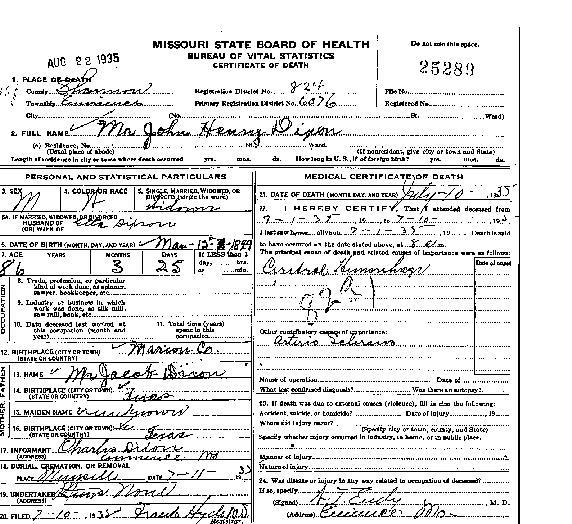 AUG 22 1935
MISSOURI STATE BOARD OF HEALTH
BUREAU OF VITAL STATISTICS
CERTIFICATE OF DEATH
Do not use this space.
25289
1. PLACE OF DEATH
County Shannon Registration District No. 824 File No.
Township Eminence Primary Registration District No. 6076 Registered No.
City No. St. Ward)
2. FULL NAME Mr John Henry Dixon
(a) Residence, No. St., Ward.
(Usual place of abode) (If nonresident, give city or town and State)
Length of residence in city or town where death occurred yrs. mos. ds. How long in U.S., if of foreign birth? yrs. mos. ds.
PERSONAL AND STATISTICAL PARTICULARS
3. SEX 4. COLOR OR RACE 5. SINGLE, MARRIED, WIDOWED, OR DIVORCED (write the word)
M W Widower
5A. IF MARRIED, WIDOWED, OR DIVORCED
HUSBAND OF (OR) WIFE OF Ella Dixon
6. DATE OF BIRTH (MONTH, DAY, AND YEAR) Mar-15-1849
7. AGE YEARS MONTHS DAYS If LESS than 1 day, hrs. or min.
86 3 25
OCCUPATION
8. Trade, profession, or particular kind of work done, as spinner, sawyer, bookkeeper, etc.
9. Industry or business in which work was done, as silk mill, saw mill, bank, etc.
10. Date deceased last worked at this occupation (month and year)
11. Total time (years) spent in this occupation
12. BIRTHPLACE (CITY OR TOWN) Marion Co.
(STATE OR COUNTRY)
FATHER
13. NAME Mr Jacob Dixon
14. BIRTHPLACE (CITY OR TOWN)
(STATE OR COUNTRY) Texas
MOTHER
15. MAIDEN NAME unknown
16. BIRTHPLACE (CITY OR TOWN)
(STATE OR COUNTRY) Texas
17. INFORMANT Charlie Dixon
(ADDRESS) Eminence Mo
18. BURIAL, CREMATION, OR REMOVAL
PLACE DATE 7-11 35
19. UNDERTAKER None
(ADDRESS)
20. FILED 7-10-1935 Frank Hyde M.D.
Registrar.
MEDICAL CERTIFICATE OF DEATH
21. DATE OF DEATH (MONTH, DAY, AND YEAR) July-10-35
22. I HEREBY CERTIFY, That I attended deceased from
7-1-35, 19, to 7-10-, 19
I last saw h alive on 7-1-35, 19 Death is said
to have occurred on the date stated above, at 8 a.m.
The principal cause of death and related causes of importance were as follows:
Date of onset
Cerebral Hemorrhage
82a
Other contributory causes of importance:
Arterio Sclerosis
Name of operation Date of
What test confirmed diagnosis? Was there an autopsy?
23. If death was due to external causes (violence), fill in also the following:
Accident, suicide, or homicide? Date of injury, 19
Where did injury occur?
(Specify city or town, county, and State)
Specify whether injury occurred in industry, in home, or in public place.
Manner of injury
Nature of injury
24. Was disease or injury in any way related to occupation of deceased?
If so, specify
(Signed) Eudy, M. D.
(Address) Eminence Mo.